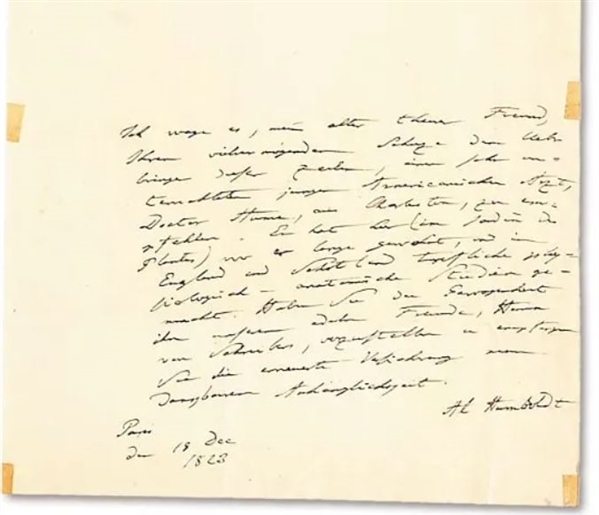 Ich wage es, mein alter theurer Freund,
Ihrem vielvermögenden Schuze den Ueber-
bringer dieser Zeilen, einen sehr un-
terrichteten jungen Americanischen Arzt,
Doctor Hume, aus Charleston, zu em-
pfehlen. Er hat hier (im Jardin des
Plantes) wo er lange gewohnt, und in
England und Schotland trefliche phy-
siologisch-anatomische Studien ge-
macht. Haben Sie die Gewogenheit
ihn unserem edeln Freunde, Herrn
von Schreibers, vorzustellen u empfangen
Sie die erneuerte Versicherung meiner
dankbaren Anhänglichkeit.
Al Humboldt
Paris
den 18 Dec
1823